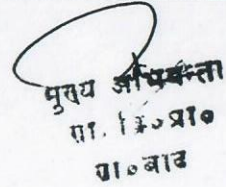 मुख्य अभियन्ता
गा. वि० प्रा०
गा०बाद